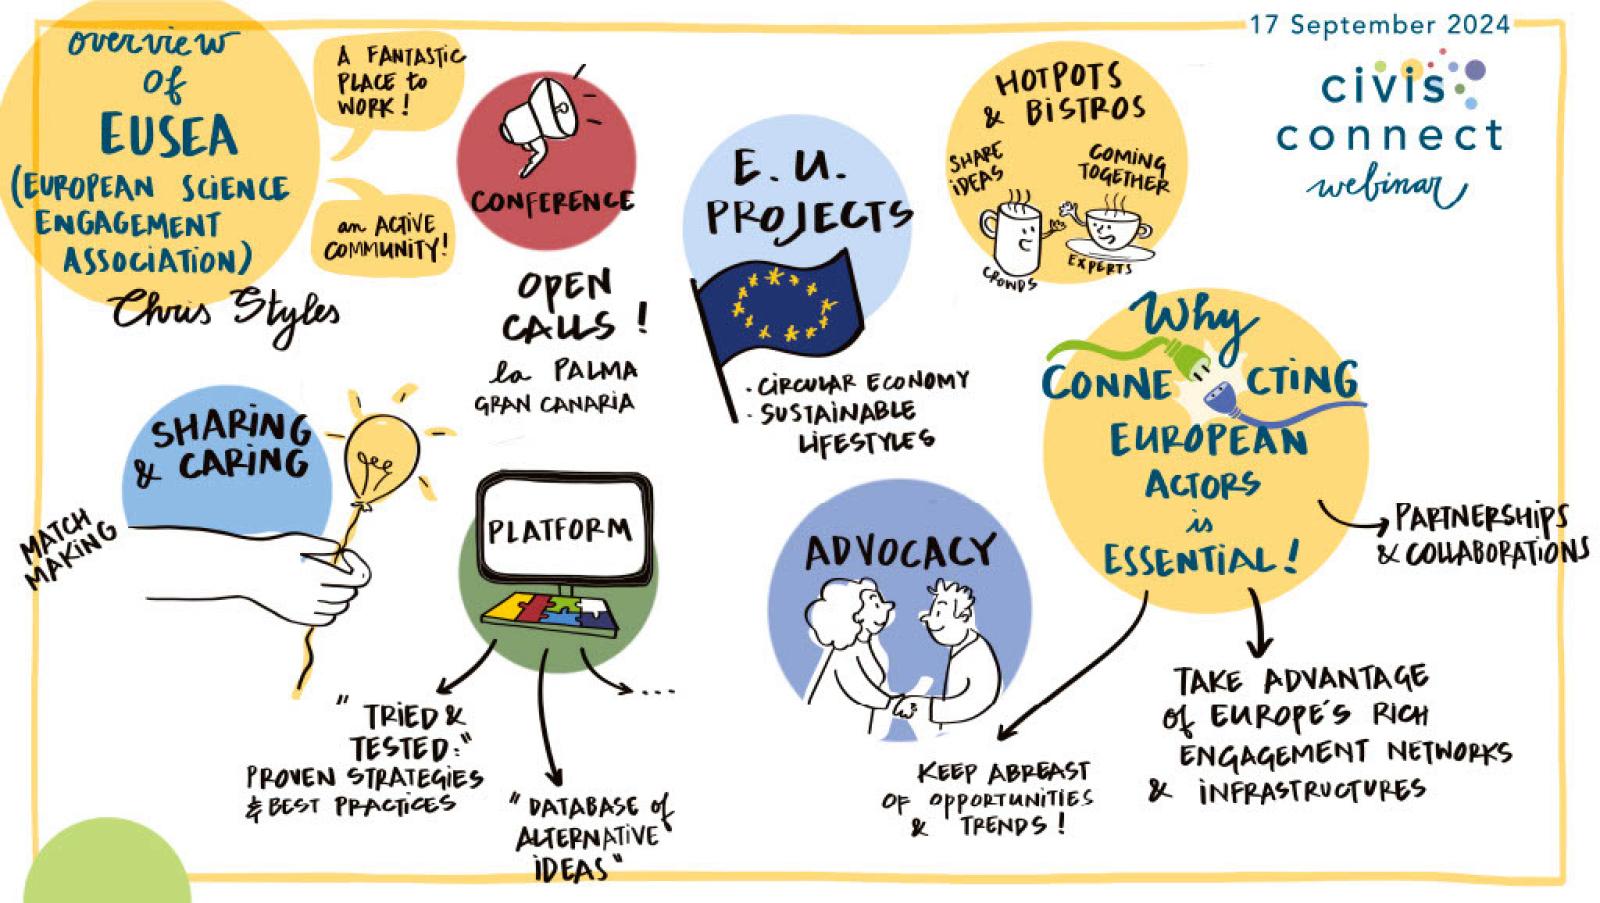 overview
of
EUSEA
(EUROPEAN SCIENCE
ENGAGEMENT
ASSOCIATION)
Chris Styles
A FANTASTIC
PLACE to
WORK!
an ACTIVE
COMMUNITY!
CONFERENCE
OPEN
CALLS!
la PALMA
GRAN CANARIA
E.U.
PROJECTS
· CIRCULAR ECONOMY
· SUSTAINABLE
LIFESTYLES
HOTPOTS
& BISTROS
SHARE
IDEAS
COMING
TOGETHER
CROWDS
EXPERTS
17 September 2024
civis
connect
webinar
Why
CONNECTING
EUROPEAN
ACTORS
is
ESSENTIAL!
PARTNERSHIPS
& COLLABORATIONS
TAKE ADVANTAGE
of EUROPE'S RICH
ENGAGEMENT NETWORKS
& INFRASTRUCTURES
KEEP ABREAST
OF OPPORTUNITIES
& TRENDS!
SHARING
& CARING
MATCH
MAKING
PLATFORM
"TRIED &
TESTED:"
PROVEN STRATEGIES
& BEST PRACTICES
"DATABASE of
ALTERNATIVE
IDEAS"
...
ADVOCACY